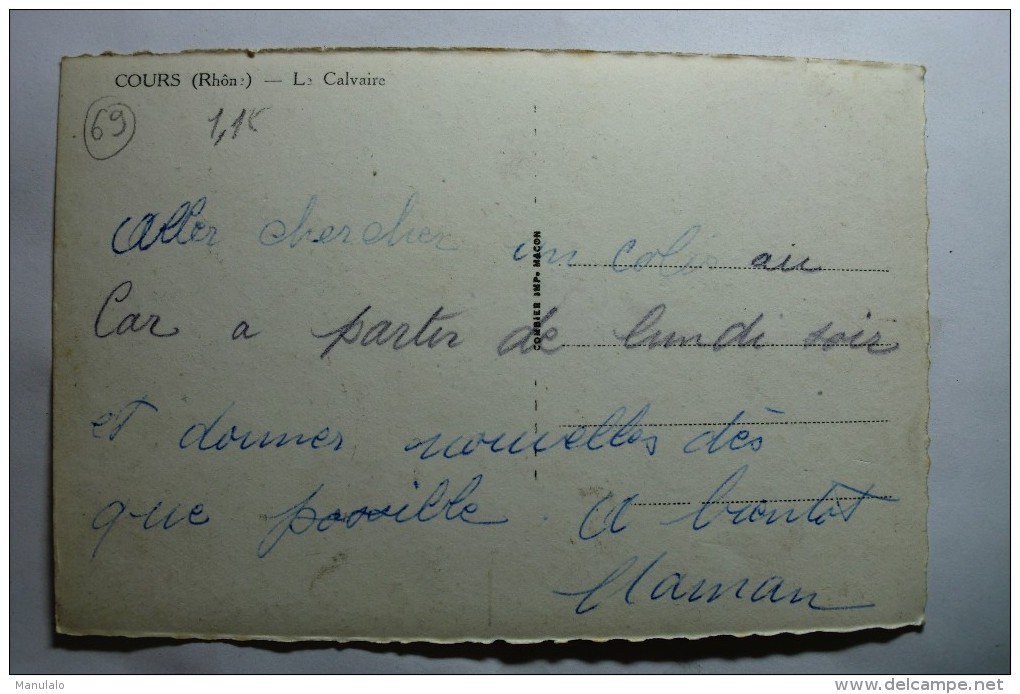 COURS (Rhône) — Le Calvaire
69
1,15
Aller chercher un colis au
Car a partir de lundi soir
et donner nouvelles dès
que possible. A bientôt
Maman
COMBIER IMP. MACON
Manulalo
www.delcampe.net